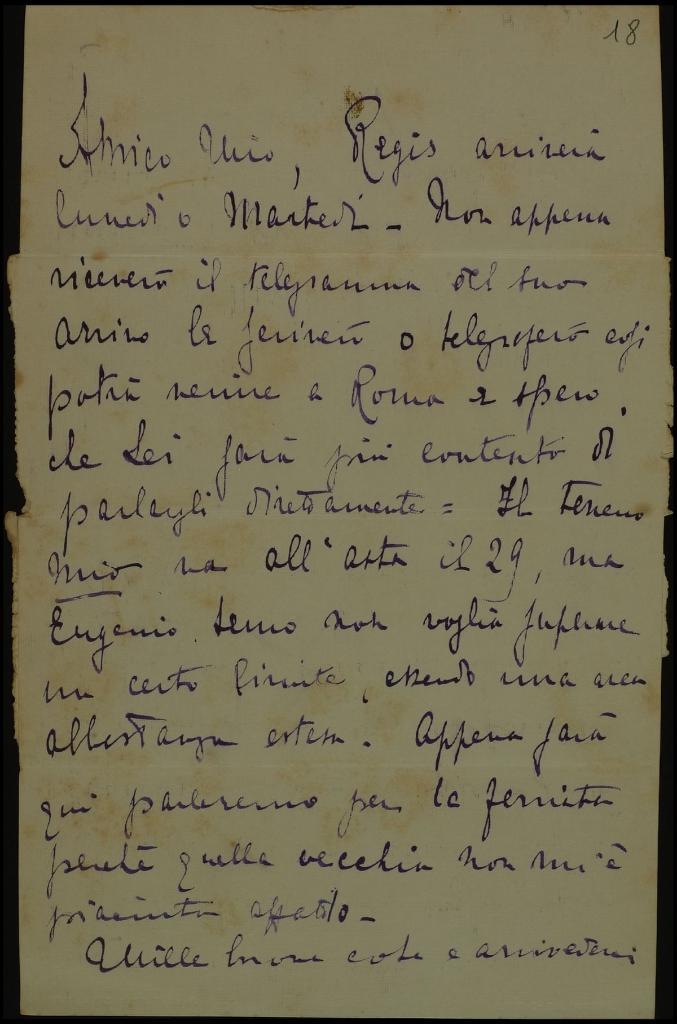 18
Amico Mio, Regis arriverà
lunedì o Martedì - Non appena
riceverò il telegramma del suo
arrivo le scriverò o telegraferò così
potrà venire a Roma e spero
che Lei sarà più contento di
parlargli direttamente = Il terreno
mio va all'asta il 29, ma
Eugenio temo non voglia superare
un certo limite, essendo una area
abbastanza estesa. Appena sarà
qui parleremo per la
perchè quella vecchia non mi è
piaciuta affatto -
Mille buone cose e arrivederci